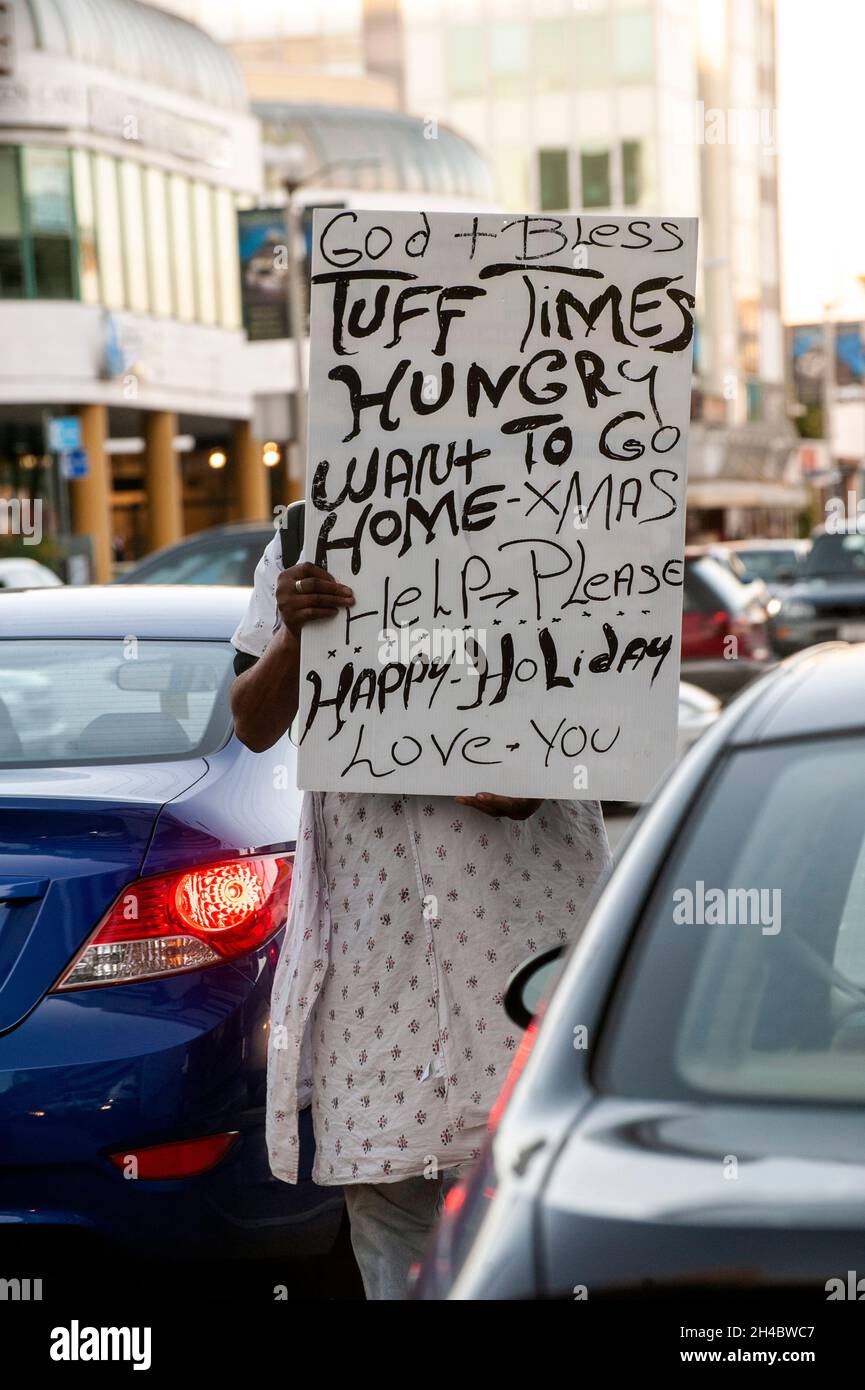 God + Bless
TUFF TIMES
HUNGRY
WANT TO GO
HOME - XMAS
HELP → PLEASE
HAPPY - HOLIDAY
LOVE - YOU
alamy
Image ID: 2H4BWC7
www.alamy.com